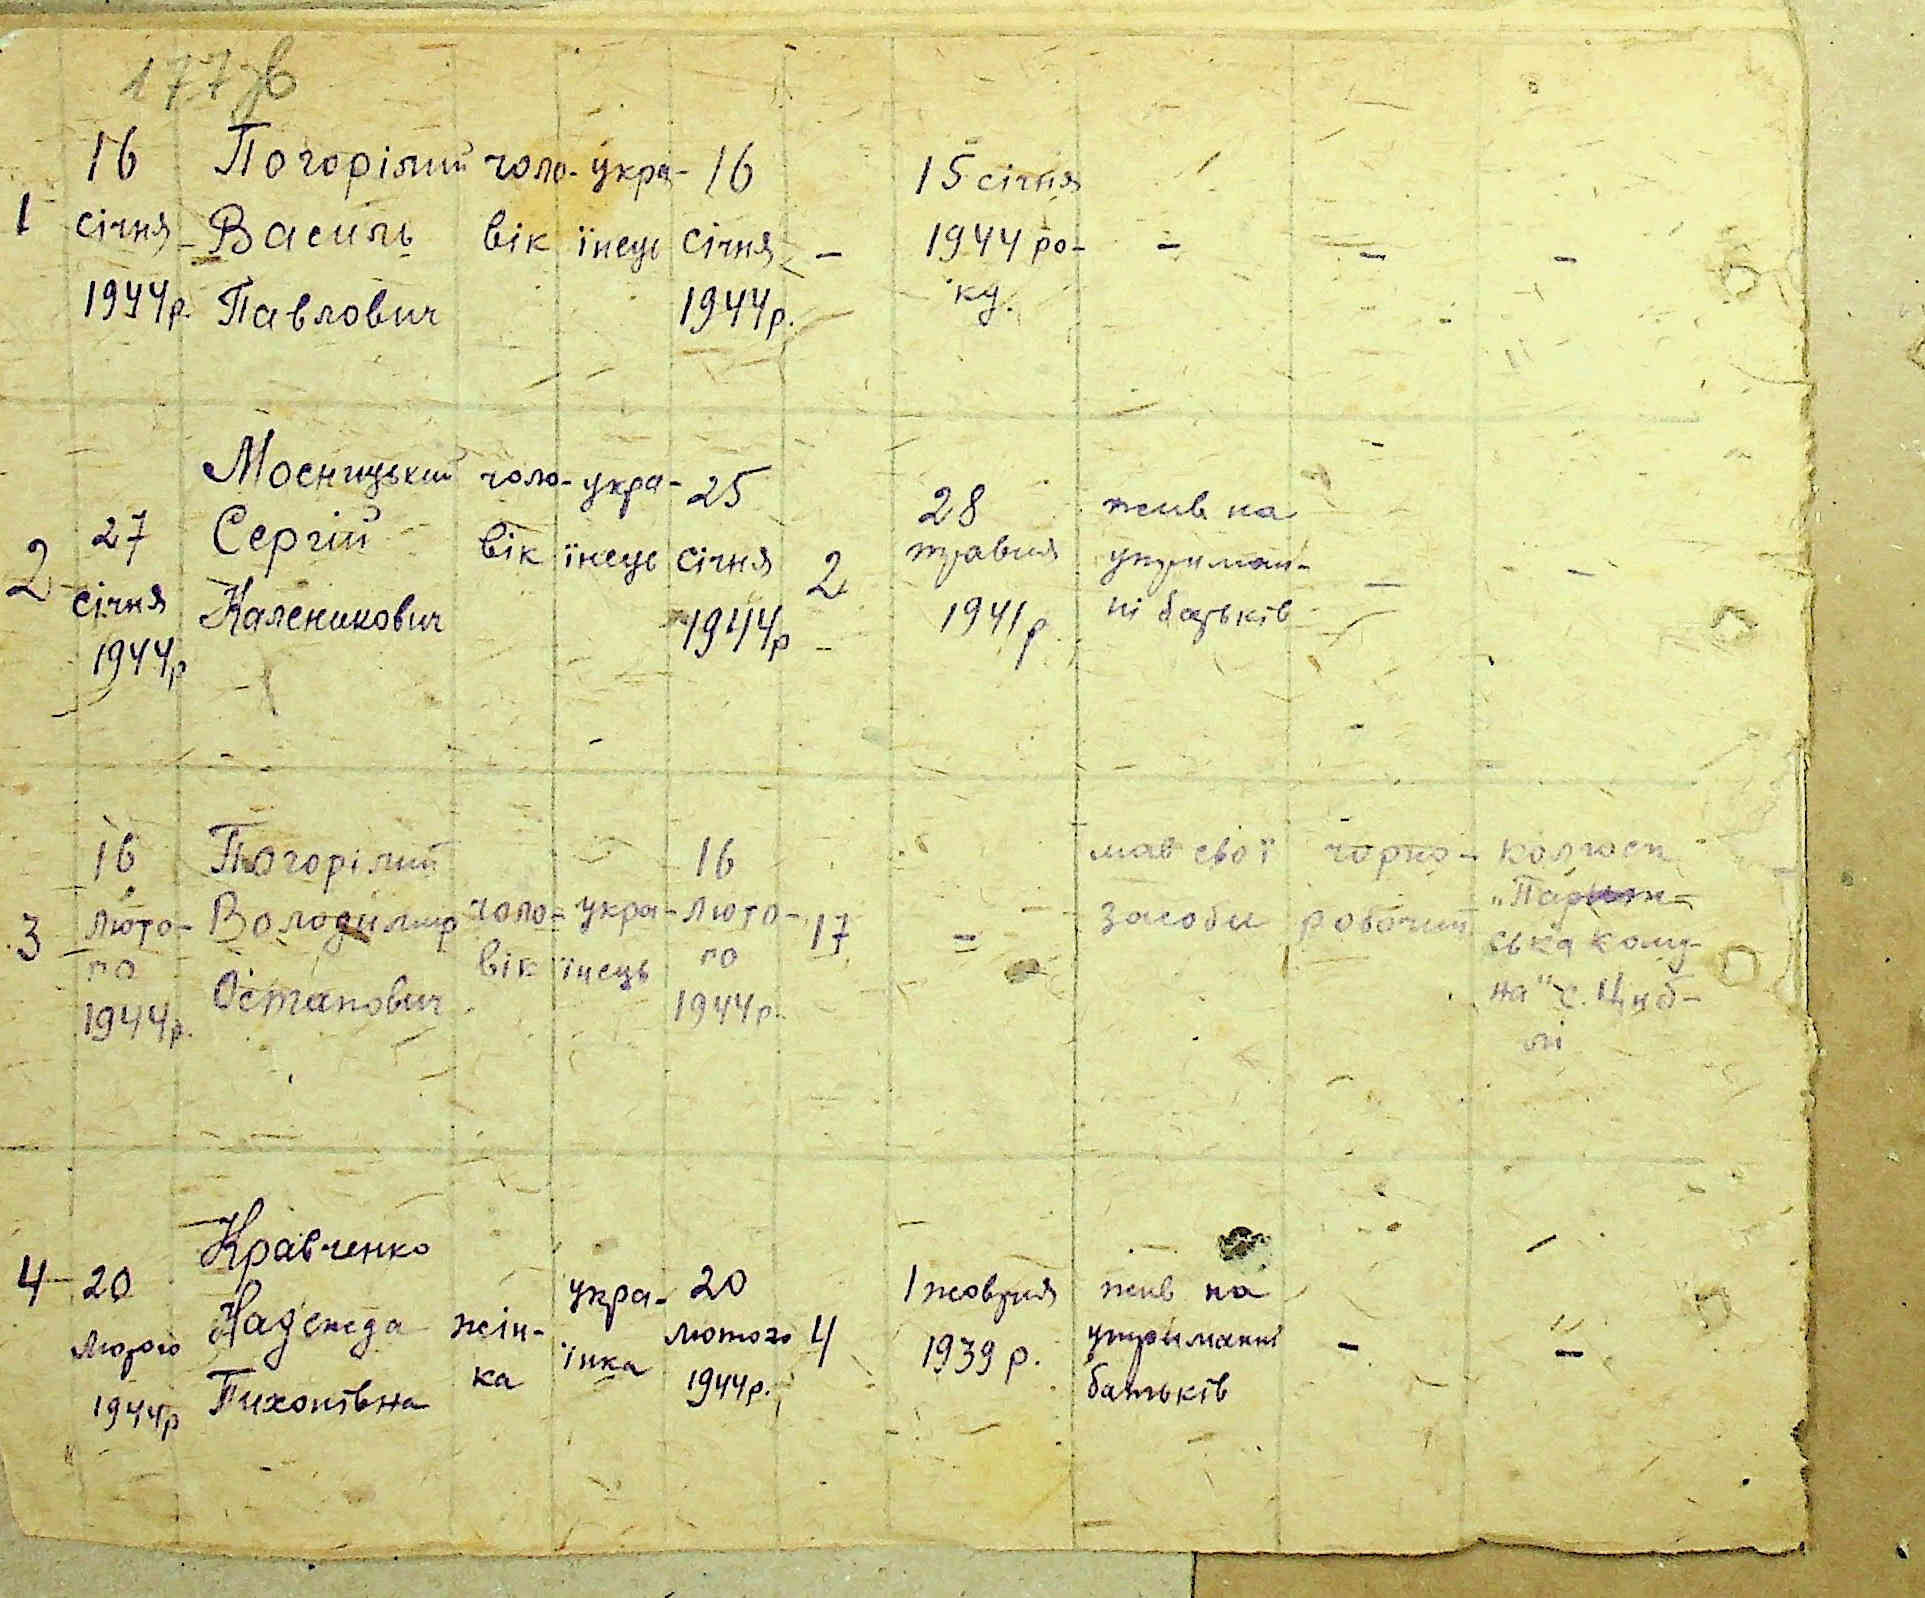 177 зв
1
16
січня
1944р.
Погорілий
Василь
Павлович
чоло-
вік
укра-
їнець
16
січня
1944р.
-
15 січня
1944 ро-
ку.
-
-
-
2
27
січня
1944р
Мосницький
Сергій
Каленикович
чоло-
вік
укра-
їнець
25
січня
1944р
2
28
травня
1941р
жив на
утриман-
ні батьків
-
-
3
16
люто-
го
1944р.
Погорілий
Володимир
Остапович
чоло-
вік
укра-
їнець
16
люто-
го
1944р.
17
-
мав свої
засоби
чорно-
робочий
колгосп
"Париж-
ська кому-
на" с. Циб-
лі
4
20
лютого
1944р
Кравченко
Надежда
Тихонівна
жін-
ка
укра-
їнка
20
лютого
1944р.
4
1 жовтня
1939 р.
жив на
утриманні
батьків
-
-